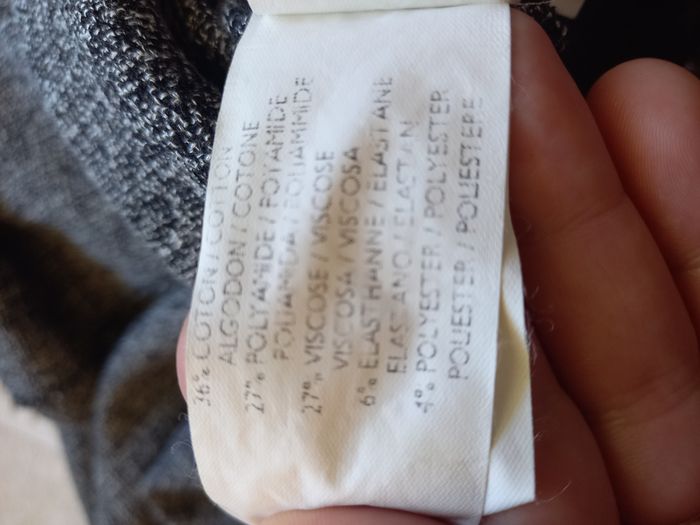 36% COTON / COTTON
ALGODON / COTONE
27% POLYAMIDE / POYAMIDE
POLIAMIDA / POLIAMMIDE
27% VISCOSE / VISCOSE
VISCOSA / VISCOSA
6% ELASTHANNE / ELASTANE
ELASTANO / ELASTAN
4% POLYESTER / POLYESTER
POLIESTER / POLIESTERE